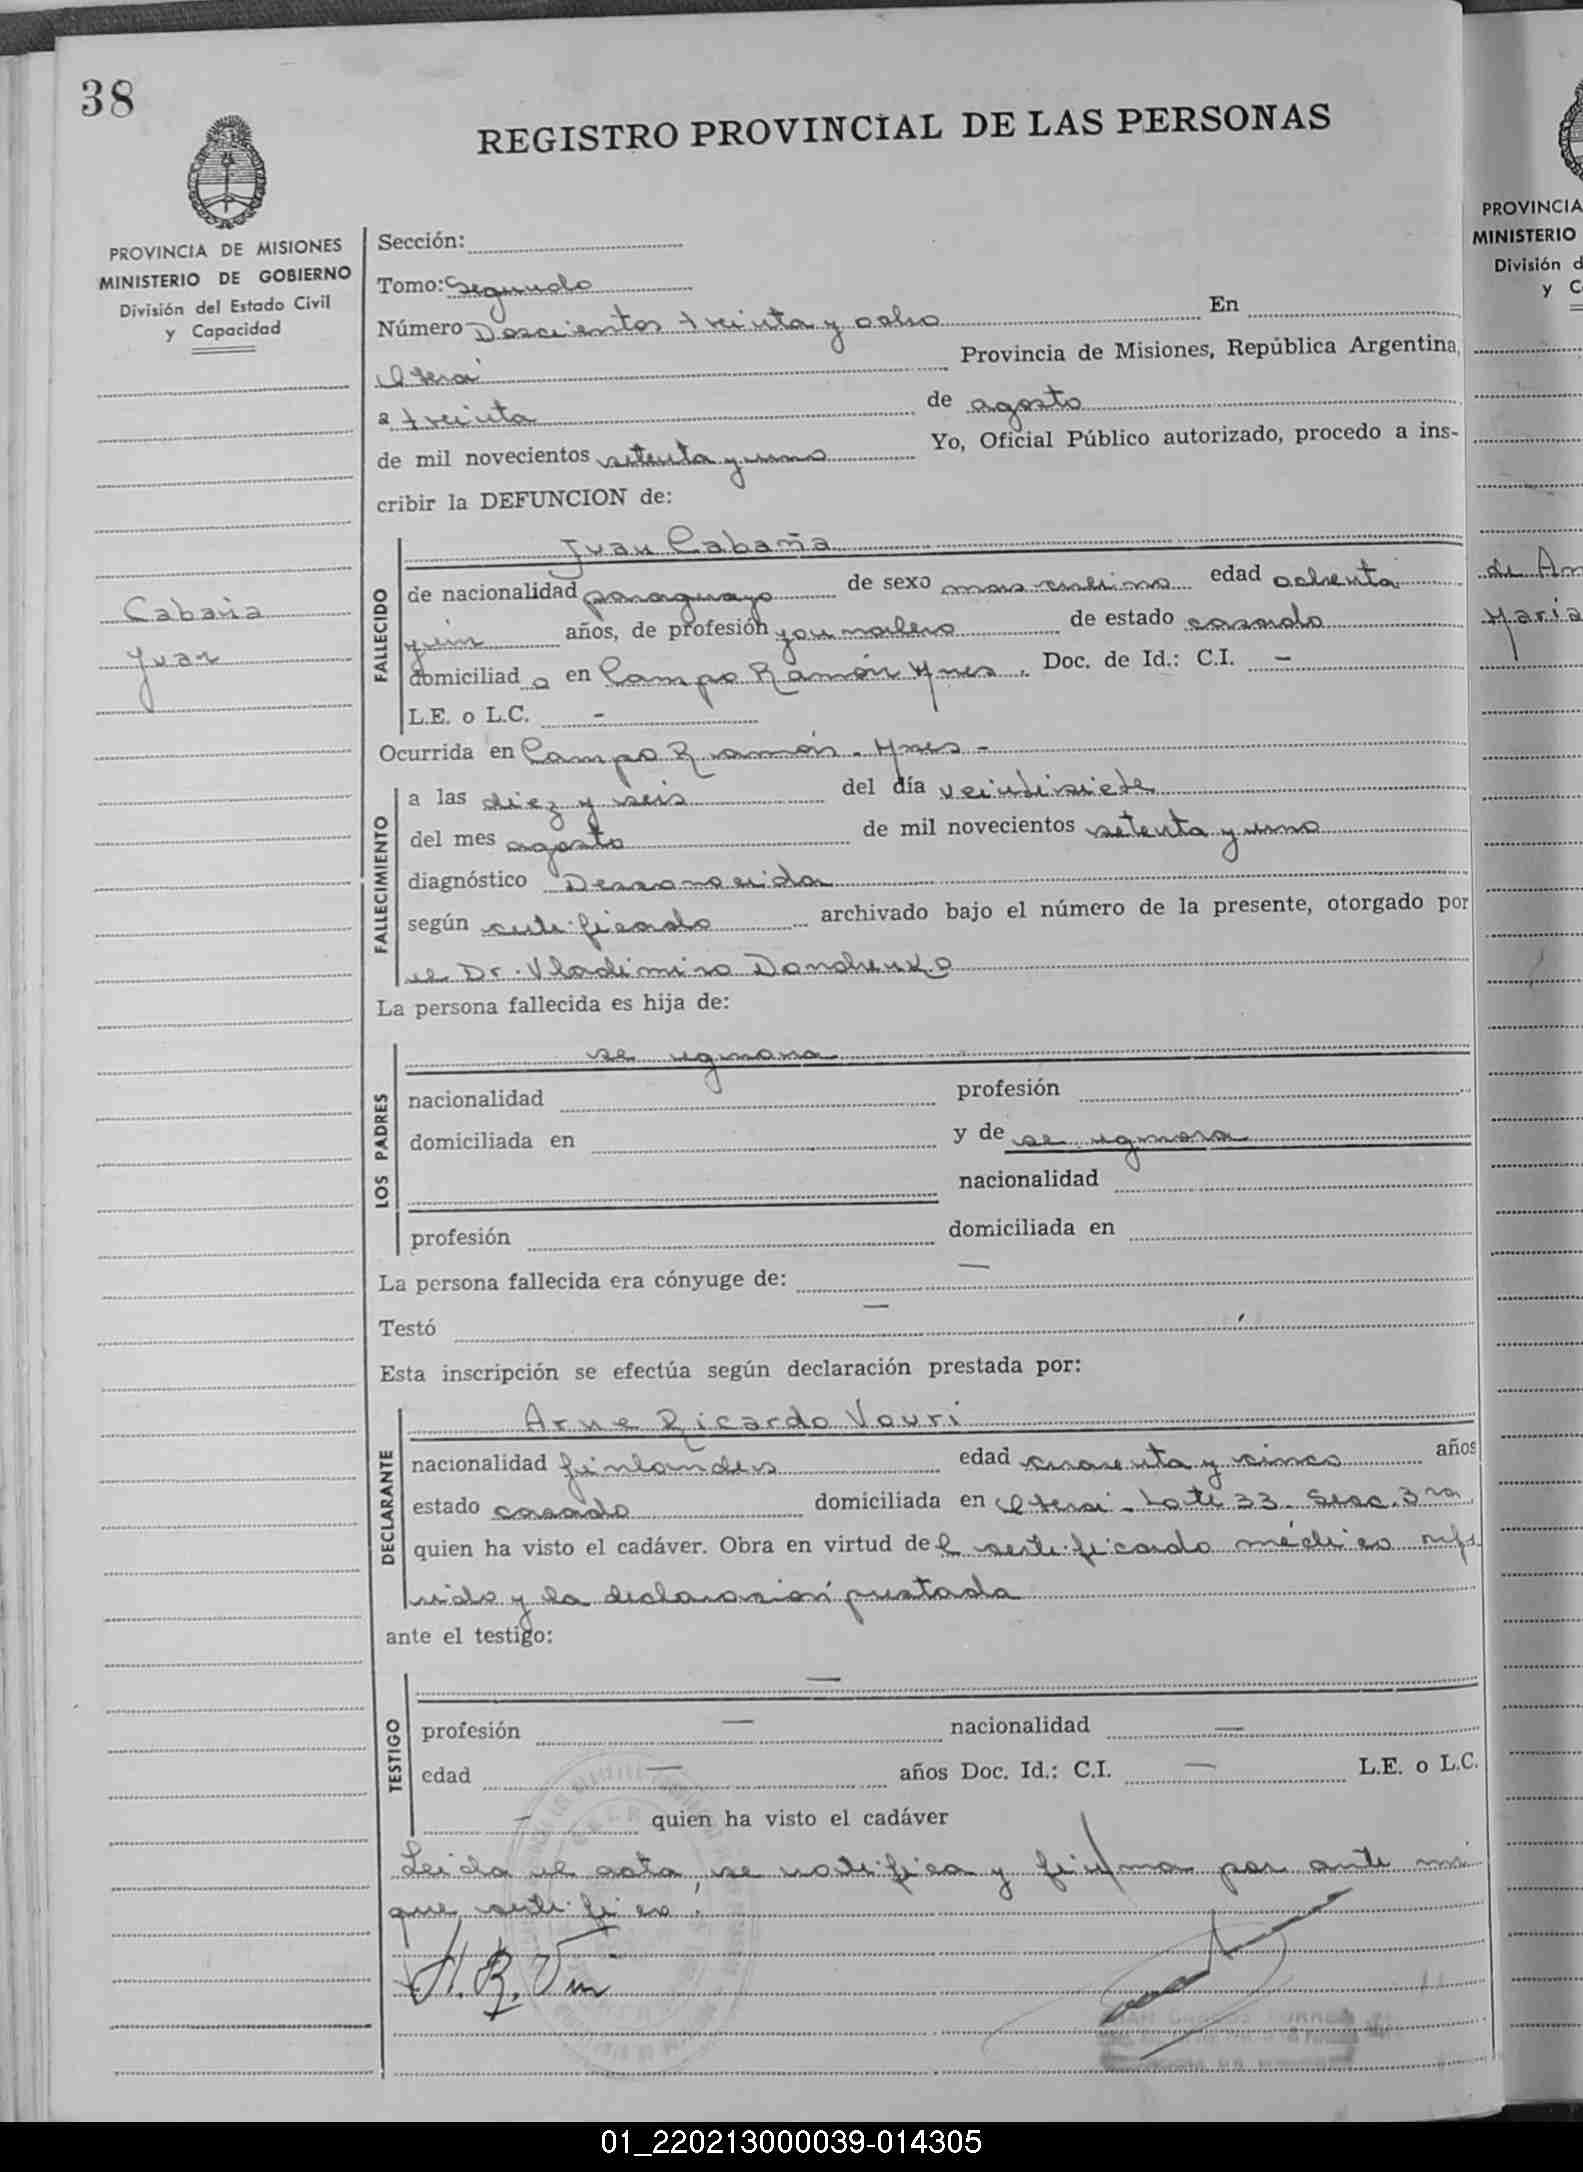 38
REGISTRO PROVINCIAL DE LAS PERSONAS
PROVINCIA DE MISIONES
MINISTERIO DE GOBIERNO
División del Estado Civil
y Capacidad
Cabaña
Juan
Sección:
Tomo: Segundo
Número Doscientos treinta y ocho En
Oberá Provincia de Misiones, República Argentina,
a treinta de agosto
de mil novecientos setenta y uno Yo, Oficial Público autorizado, procedo a ins-
cribir la DEFUNCION de:
FALLECIDO
Juan Cabaña
de nacionalidad paraguayo de sexo masculino edad ochenta
y un años, de profesión jornalero de estado casado
domiciliado en Campo Ramón Mnes. Doc. de Id.: C.I. -
L.E. o L.C. -
Ocurrida en Campo Ramón. Mnes -
FALLECIMIENTO
a las diez y seis del día veintisiete
del mes agosto de mil novecientos setenta y uno
diagnóstico Desconocida
según certificado archivado bajo el número de la presente, otorgado por
el Dr. Vladimiro Donchenko
La persona fallecida es hija de:
LOS PADRES
se ignora
nacionalidad profesión
domiciliada en y de se ignora
nacionalidad
profesión domiciliada en
La persona fallecida era cónyuge de: —
Testó —
Esta inscripción se efectúa según declaración prestada por:
DECLARANTE
Arne Ricardo Vouri
nacionalidad finlandes edad cuarenta y cinco años
estado casado domiciliada en Oberá - Lote 33. Secc. 3ra
quien ha visto el cadáver. Obra en virtud del certificado médico refe
rido y la declaración prestada
ante el testigo:
TESTIGO
—
profesión — nacionalidad —
edad — años Doc. Id.: C.I. — L.E. o L.C.
- quien ha visto el cadáver
Leida el acta, se notifica y firma por ante mi
que certifico.
PROVINCIA
MINISTERIO
División d
y C
de An
Maria
01_220213000039-014305